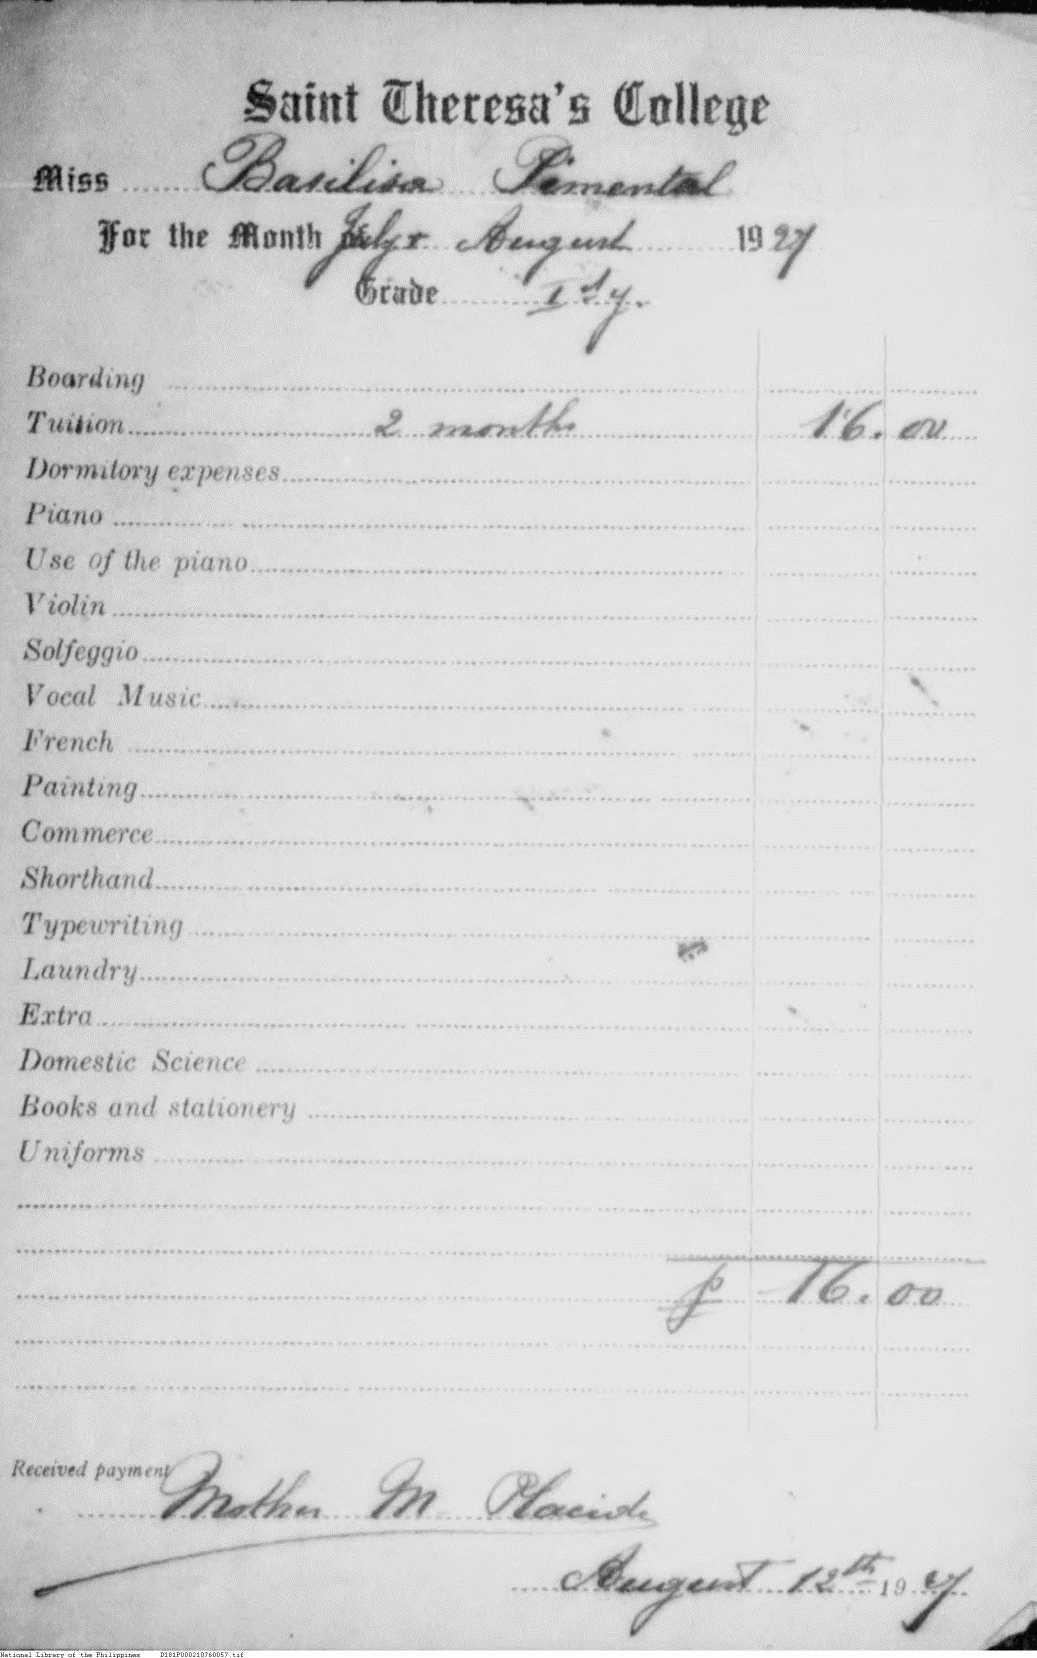 Saint Theresa's College
Miss Basilisa Pimental
For the Month July & August 1927
Grade I st y.
Boarding
Tuition 2 months 16.00
Dormitory expenses
Piano
Use of the piano
Violin
Solfeggio
Vocal Music
French
Painting
Commerce
Shorthand
Typewriting
Laundry
Extra
Domestic Science
Books and stationery
Uniforms
₱ 16.00
Received payment
Mother M Placide
August 12th 1927
National Library of the Philippines D181P000210760057.tif